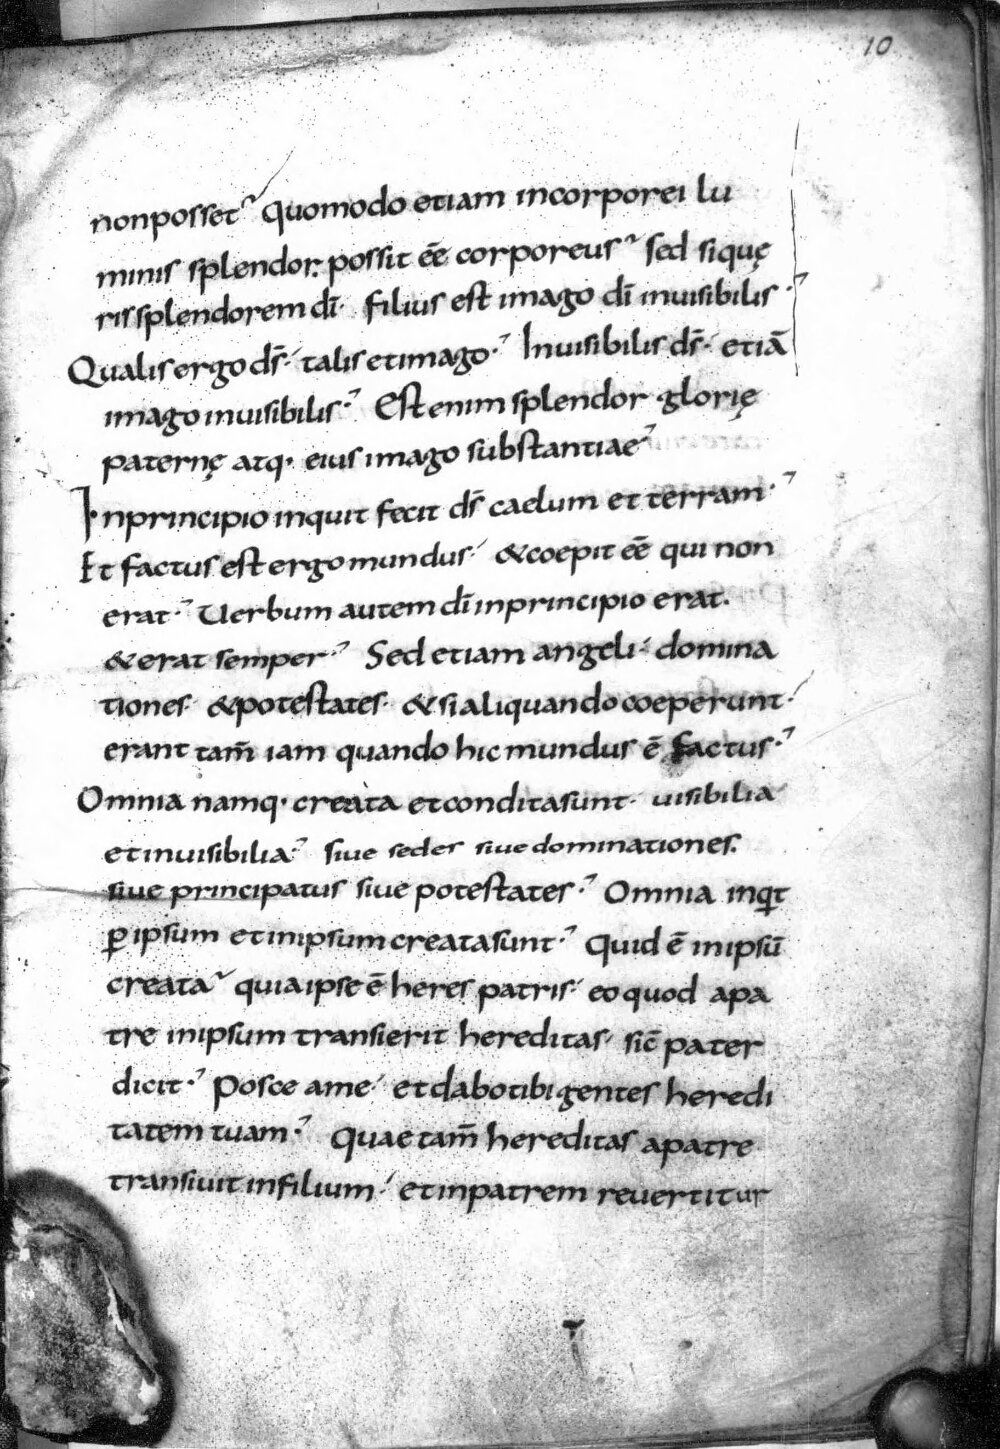 10
nonposset? quomodo etiam incorporei lu
minis splendor. possit eē corporeus? sed siquę
ris splendorem dī· filius est imago dī inuisibilis·
Qualis ergo ds̄· talis et imago· Inuisibilis ds̄· etiā
imago inuisibilis· Est enim splendor· glorię
paternę atq· eius imago substantiae
Inprincipio inquit fecit ds̄ caelum et terram·
Et factus est ergo mundus· & coepit eē qui non
erat· Uerbum autem dī inprincipio erat.
& erat semper· Sed etiam angeli· domina
tiones· & potestates· & si aliquando coeperunt·
erant tam̄ iam quando hic mundus ē factus·
Omnia namq· creata et condita sunt· uisibilia
et inuisibilia· siue sedes siue dominationes.
siue principatus siue potestates· Omnia inqt
ꝑ ipsum et inipsum creata sunt· Quid ē inipsū
creata? quia ipse ē heres patris· eo quod apa
tre inipsum transierit hereditas· sic̄ pater
dicit· Posce ame· et dabo tibi gentes heredi
tatem tuam· Quae tam̄ hereditas apatre
transiuit infilium· et inpatrem reuertitur